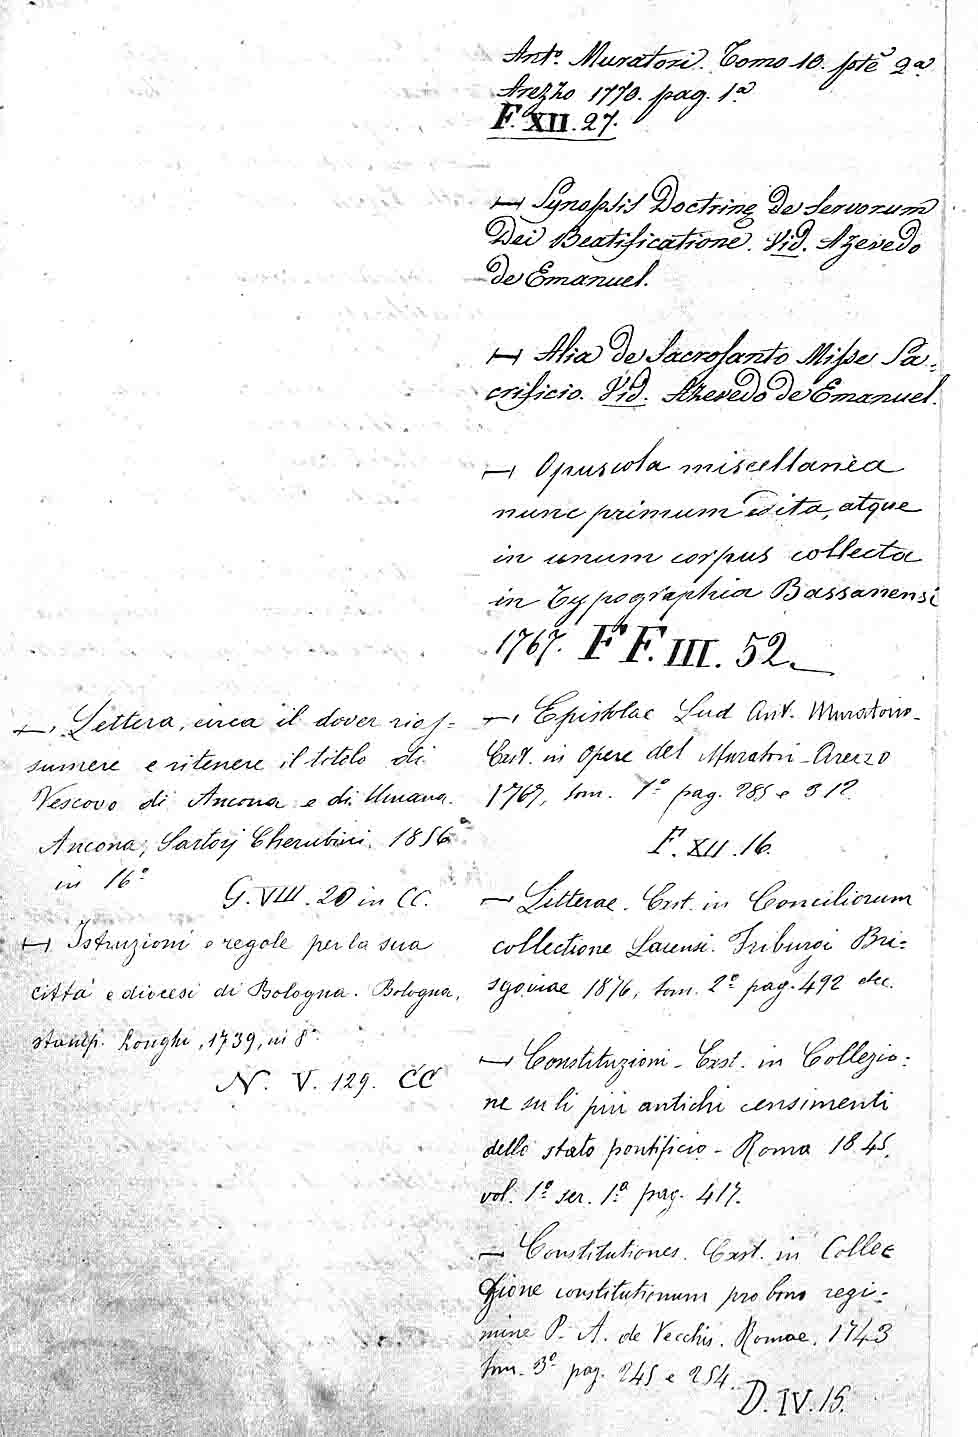 Ant.º Muratori. Tomo 10. pte 2.ª
Arezzo 1770. pag. 1.ª
F. XII. 27.
— Synopsis Doctrinę de Servorum
Dei Beatificatione. Vid. Azevedo
de Emanuel.
— Alia de Sacrosanto Misse Sa=
crificio. Vid. Azevedo de Emanuel.
— Opuscola miscellanea
nunc primum edita, atque
in unum corpus collecta
in Typographia Bassanensi
1767. F F. III. 52.
— Epistolae Lud Ant. Muratorio-
Exst. in Opere del Muratori - Arezzo
1767, tom. 7º pag. 285 e 312.
F. XII. 16.
— Litterae. Exst. in Conciliorum
collectione Lacensi. Friburgi Bri=
sgoviae 1876, tom. 2º pag. 492 etc.
— Constituzioni - Exst. in Collezio=
ne su li più antichi censimenti
dello stato pontificio - Roma 1845,
vol. 1º ser. 1ª pag. 417.
— Constitutiones. Exst. in Collec
zione constitutionum pro bono regi=
mine P. A. de Vecchis. Romae. 1743
tom. 3º pag. 245 e 254.
D. IV. 15.
— Lettera, circa il dover rias-
sumere e ritenere il titolo di
Vescovo di Ancona e di Umana.
Ancona, Sartorj Cherubini. 1856
in 16º
G. VIII. 20 in CC.
— Istruzioni e regole per la sua
città e diocesi di Bologna. Bologna,
stamp. Longhi, 1739, in 8º
N. V. 129. CC